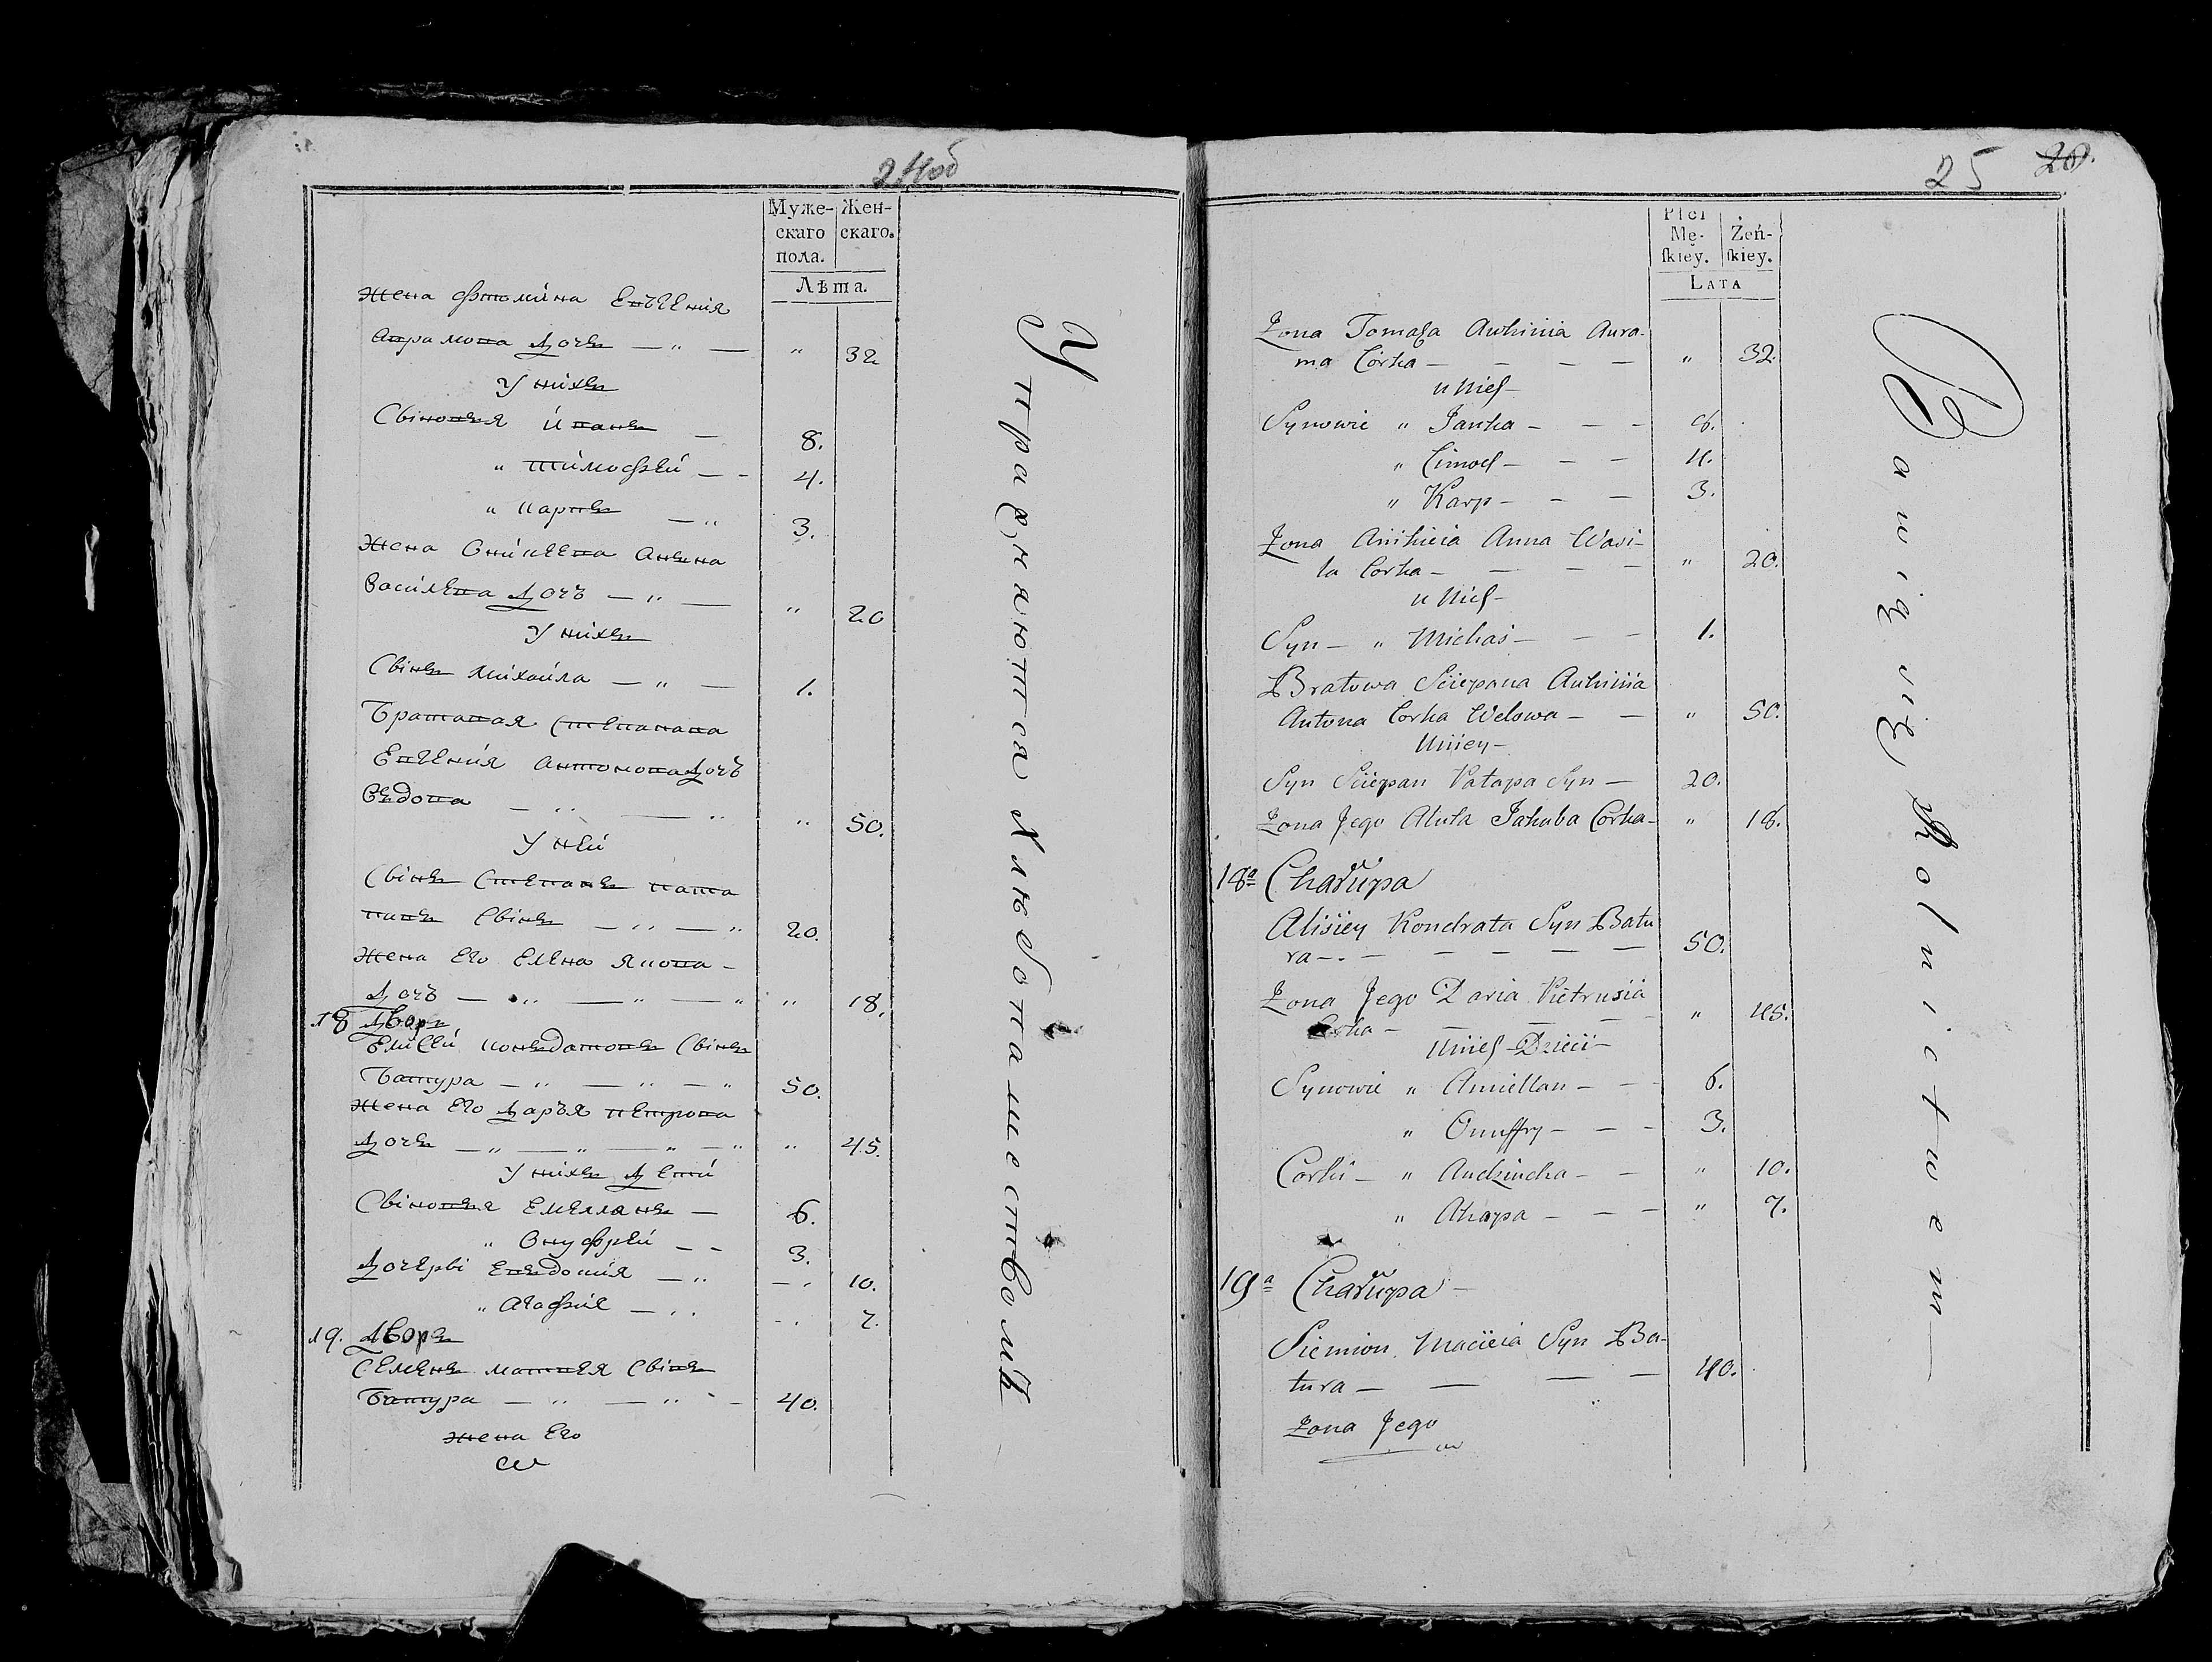 24об
Муже- Жен-
скаго скаго.
пола.
Лѣта.
Жена Фтомина Евъгения
Аврамова дочь — „ — „ 32
У нихъ
Сыновья Иванъ — 8.
„ Тимофѣй — - 4.
„ Карпъ — „ 3.
Жена Оникѣева Анъна
Василева дочъ — „ — „ 20
У нихъ
Сынъ Михаила — „ — 1.
Братавая Степанава
Евгения Антонова дочъ
Въдова — „ — „ „ 50.
У ней
Сынъ Степанъ Пата
павъ Сынъ — „ — „ 20.
Жена Его Елена Якова -
дочъ — „ — „ — „ „ 18.
18 Дворъ
Елисѣй Конъдатовъ Сынъ
Батура — „ — „ — „ 50.
Жена Его Даръя Петрова
дочь — „ — „ — „ — „ „ 45.
У нихъ Дети
Сыновья Емелянъ — 6.
„ Онуфрѣй — - 3.
Дочеры Евъдокия — „ — „ 10.
„ Агафия — „ - „ 7.
19. Дворъ
Семенъ Матвея Сынъ
Батура — „ — „ - 40.
Жена Его
Упражнаются Хлѣбопашествомъ
25 20.
Płci
Mę- Żeń-
ſkiey. ſkiey.
LATA
Żona Tomaſza Awhinia Aura-
ma Córka — — — „ 32.
u Nich —
Synowie „ Janka — — - 8.
„ Cimoch — — — 4.
„ Karp — - — 3.
Żona Anikieia Anna Wasi-
la Corka — — — — „ 20.
u Nich —
Syn — „ Michaś — — — 1.
Bratowa Sciepana Auhinia
Antona Corka Wdowa — — „ 50.
U niey —
Syn Sciepan Patapa Syn — 20.
Żona Jego Aluta Jakuba Corka — „ 18.
18ª Chałupa
Alisiey Kondrata Syn Batu
ra — - — — — — 50.
Żona Jego Daria Pietrusia
Corka — — — — „ 45.
U nich Dzieci —
Synowie „ Amiellan — — 6.
„ Onuffry — — - 3.
Corki — „ Audzincha — — „ 10.
„ Ahapa — — — „ 7.
19ª Chałupa —
Siemion Macieia Syn Ba-
tura — — — — 40.
Żona Jego
Bawią się Rolnictwem —